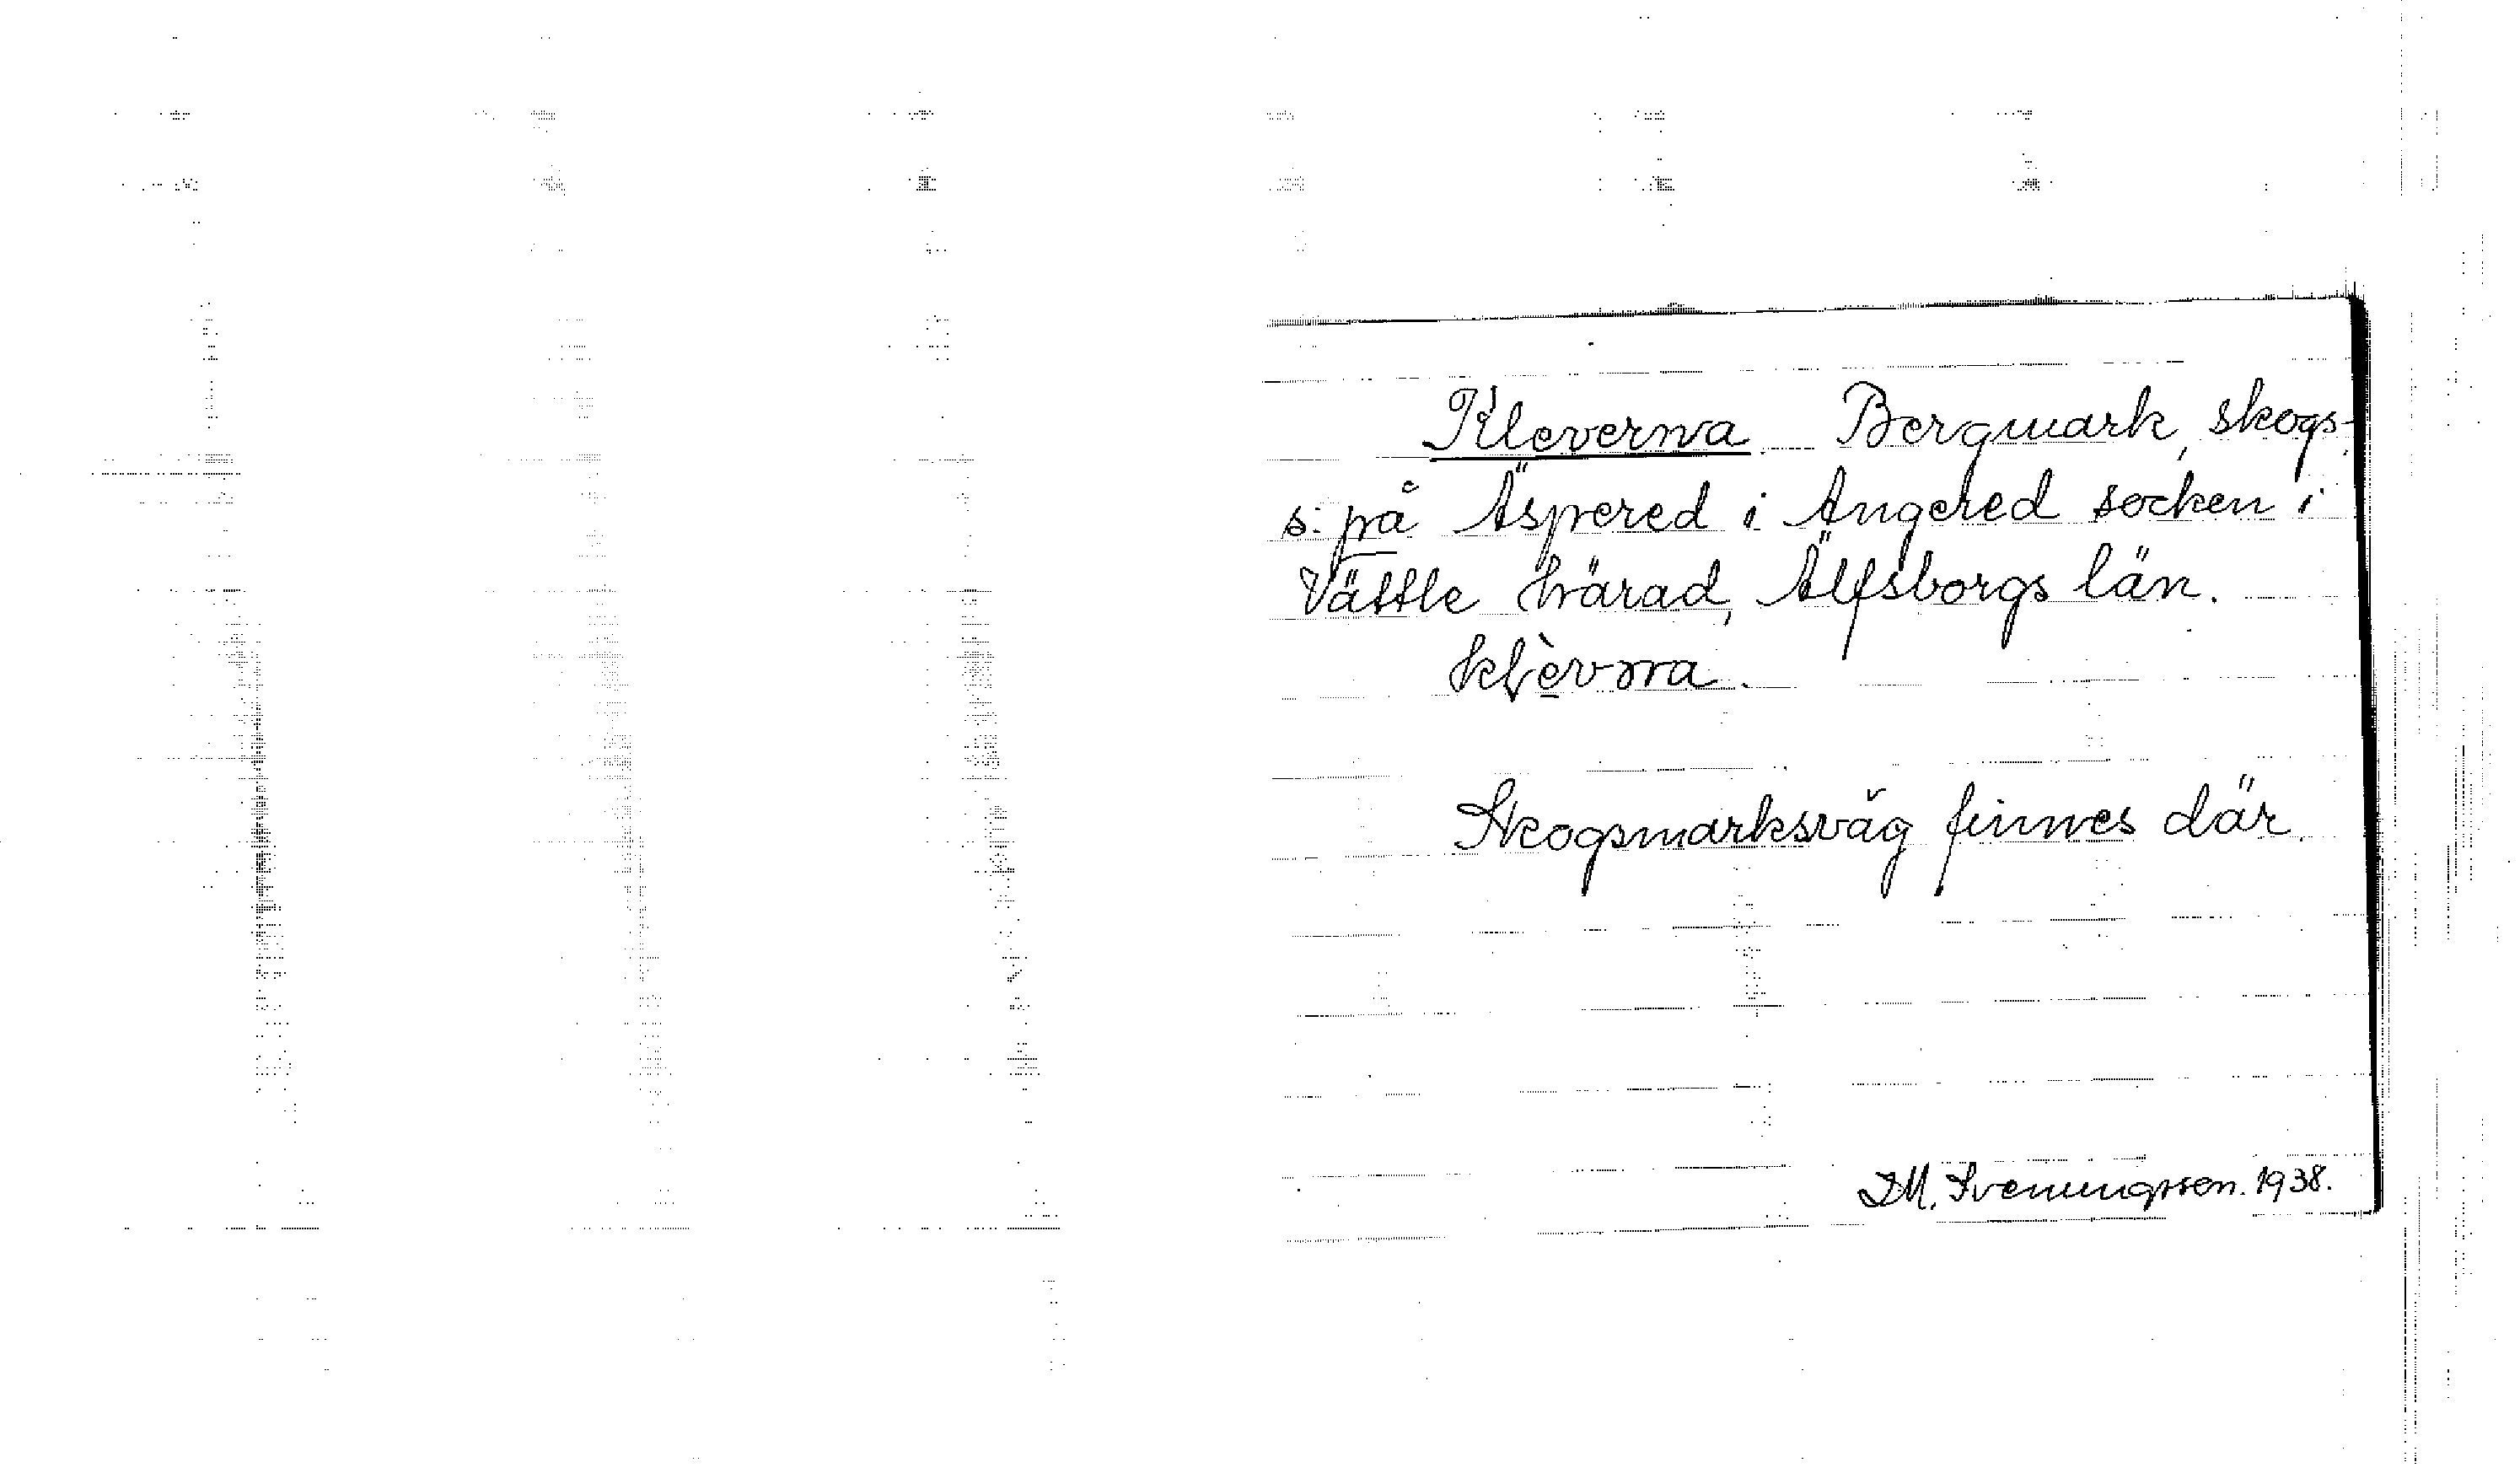 Kleverna Bergmark, skogs-
s. på Äspered i Angered socken i
Vättle härad, Älfsborgs län.
klèvṇa.
Skogsmarksväg finnes där.
I M. Svenungsson. 1938.